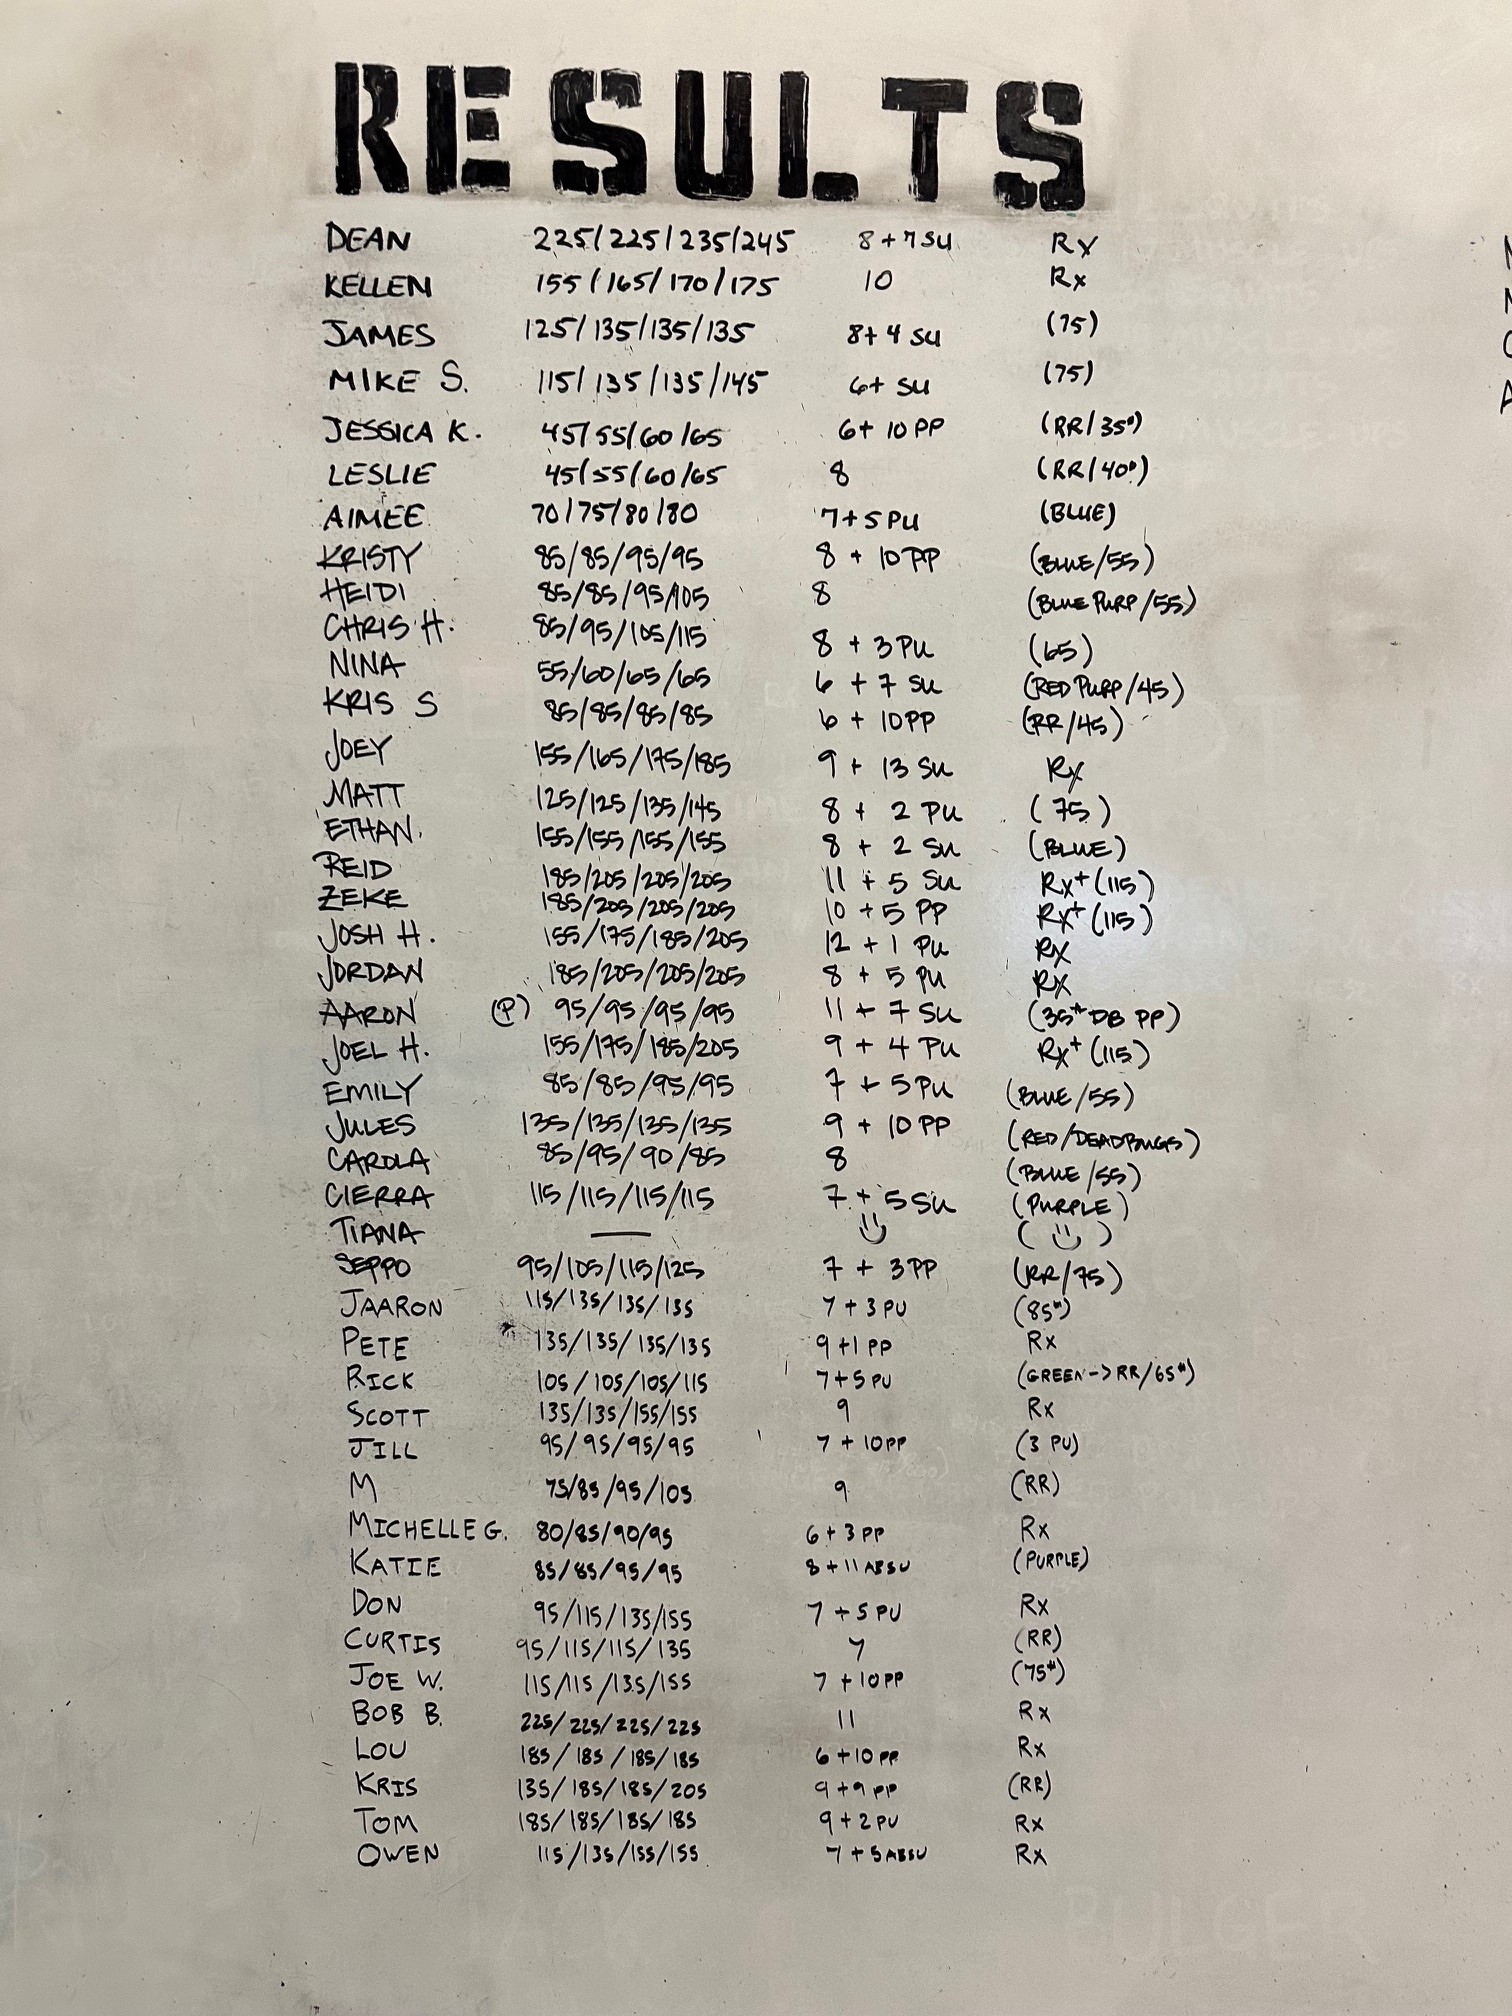 RESULTS
DEAN 225/225/235/245 8+7 SU Rx
KELLEN 155/165/170/175 10 Rx
JAMES 125/135/135/135 8+4 SU (75)
MIKE S. 115/135/135/145 6+ SU (75)
JESSICA K. 45/55/60/65 6+10 PP (RR/35#)
LESLIE 45/55/60/65 8 (RR/40#)
AIMEE 70/75/80/80 7+5 PU (BLUE)
KRISTY 85/85/95/95 8 + 10 PP (BLUE/55)
HEIDI 85/85/95/105 8 (BLUE PURP/55)
CHRIS H. 85/95/105/115 8 + 3 PU (65)
NINA 55/60/65/65 6 + 7 SU (RED PURP/45)
KRIS S 85/85/85/85 6 + 10 PP (RR/45)
JOEY 155/165/175/185 9 + 13 SU Rx
MATT 125/125/135/145 8 + 2 PU (75)
ETHAN. 155/155/155/155 8 + 2 SU (BLUE)
REID 185/205/205/205 11 + 5 SU Rx+ (115)
ZEKE 185/205/205/205 10 + 5 PP Rx+ (115)
JOSH H. 155/175/185/205 12 + 1 PU Rx
JORDAN 185/205/205/205 8 + 5 PU Rx
AARON (P) 95/95/95/95 11 + 7 SU (35# DB PP)
JOEL H. 155/175/185/205 9 + 4 PU Rx+ (115)
EMILY 85/85/95/95 7 + 5 PU (BLUE/55)
JULES 135/135/135/135 9 + 10 PP (RED/DEADBUGS)
CAROLA 85/95/90/85 8 (BLUE/55)
CIERRA 115/115/115/115 7 + 5 SU (PURPLE)
TIANA — ( )
SEPPO 95/105/115/125 7 + 3 PP (RR/75)
JAARON 115/135/135/135 7 + 3 PU (85#)
PETE 135/135/135/135 9 +1 PP Rx
RICK 105/105/105/115 7+5 PU (GREEN->RR/65#)
SCOTT 135/135/155/155 9 Rx
JILL 95/95/95/95 7 + 10PP (3 PU)
M 75/85/95/105 9 (RR)
MICHELLE G. 80/85/90/95 6 + 3 PP Rx
KATIE 85/85/95/95 8 + 11 ABSU (PURPLE)
DON 95/115/135/155 7 + 5 PU Rx
CURTIS 95/115/115/135 7 (RR)
JOE W. 115/115/135/155 7 + 10 PP (75#)
BOB B. 225/225/225/225 11 Rx
LOU 185/185/185/185 6 + 10 PP Rx
KRIS 135/185/185/205 9+9 PP (RR)
TOM 185/185/185/185 9 + 2 PU Rx
OWEN 115/135/155/155 7 + 5 ABSU Rx